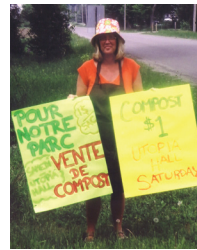 POUR
NOTRE
PARC
VENTE
DE
COMPOST
COMPOST
$1
UTOPIA
HALL
SATURDAY